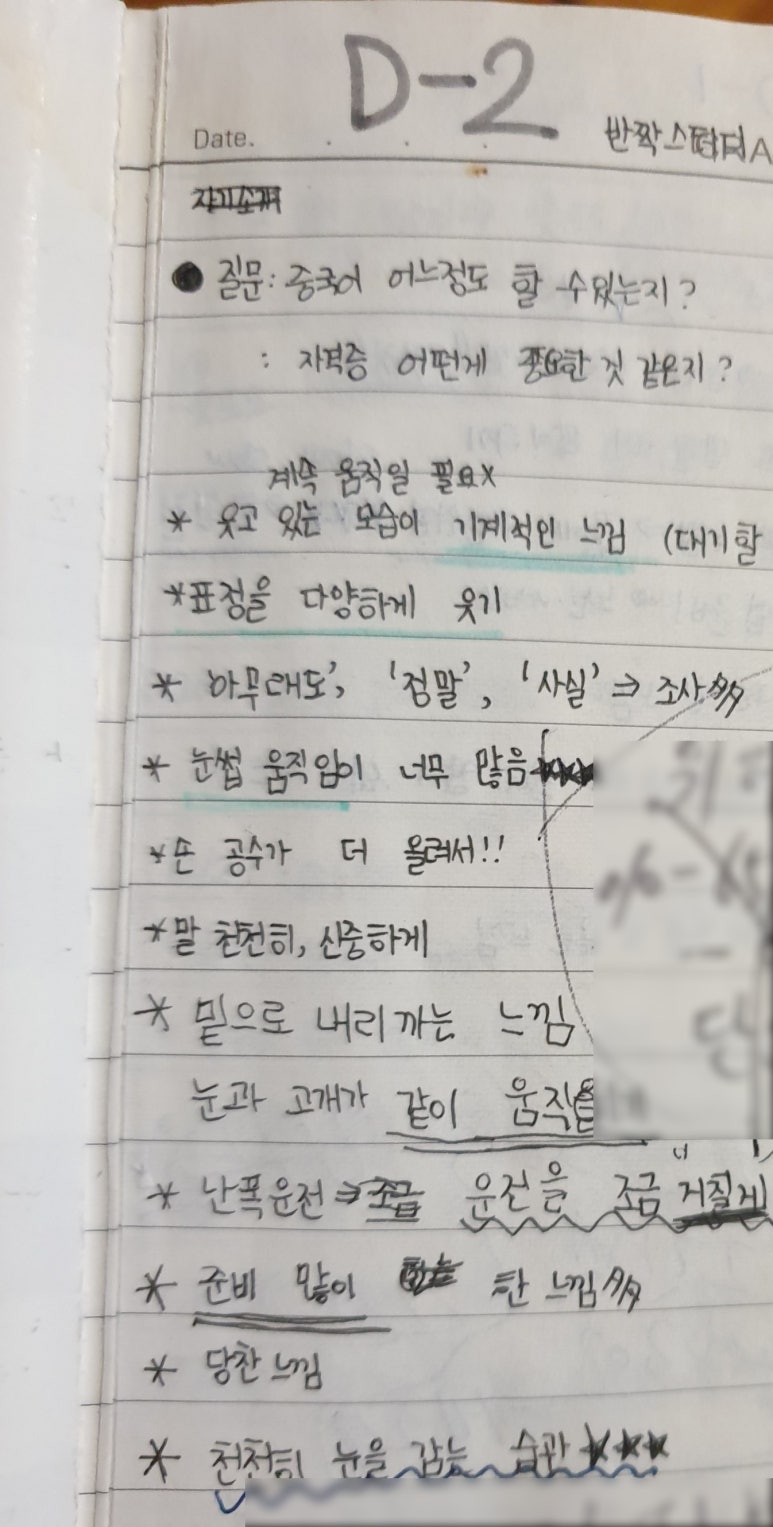 D-2
Date.
반짝스터디A
자기소개
● 질문: 중국어 어느정도 할 수있는지?
: 자격증 어떤게 중요한 것 같은지?
계속 움직일 필요X
* 웃고 있는 모습이 기계적인 느낌 (대기할
* 표정을 다양하게 웃기
* '아무래도', '정말', '사실' ⇒ 조사多
* 눈썹 움직임이 너무 많음
* 손 공수가 더 올려서!!
* 말 천천히, 신중하게
* 밑으로 내리까는 느낌
눈과 고개가 같이
* 난폭운전 ⇒ 조금 운전을 조금 거칠게
* 준비 많이 한 느낌多
* 당찬 느낌
* 천천히 눈을 감는 습관 ★★★